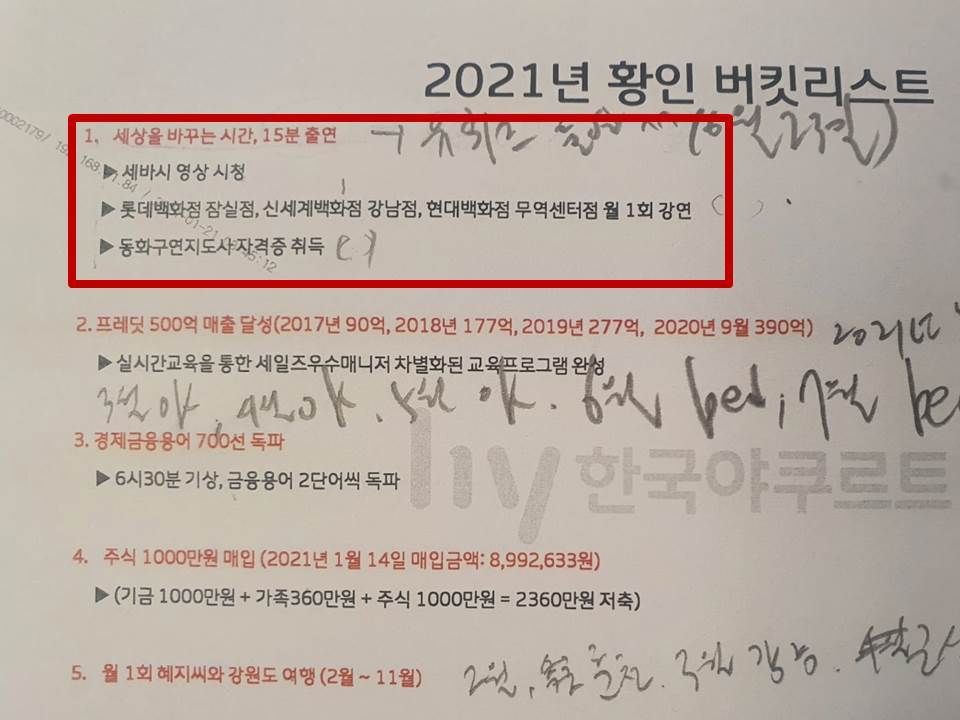 2021년 황인 버킷리스트
1. 세상을 바꾸는 시간, 15분 출연 → 유퀴즈
▶ 세바시 영상 시청
▶ 롯데백화점 잠실점, 신세계백화점 강남점, 현대백화점 무역센터점 월 1회 강연 ( )
▶ 동화구연지도사 자격증 취득 ( )
2. 프레딧 500억 매출 달성(2017년 90억, 2018년 177억, 2019년 277억, 2020년 9월 390억) 2021년
▶ 실시간교육을 통한 세일즈우수매니저 차별화된 교육프로그램 완성
3월 야, 4월 야, 5월 야, 6월 bed, 7월 be
3. 경제금융용어 700선 독파
▶ 6시30분 기상, 금융용어 2단어씩 독파
hy 한국야쿠르트
4. 주식 1000만원 매입 (2021년 1월 14일 매입금액: 8,992,633원)
▶ (기금 1000만원 + 가족360만원 + 주식 1000만원 = 2360만원 저축)
5. 월 1회 혜지씨와 강원도 여행 (2월 ~ 11월) 2월,